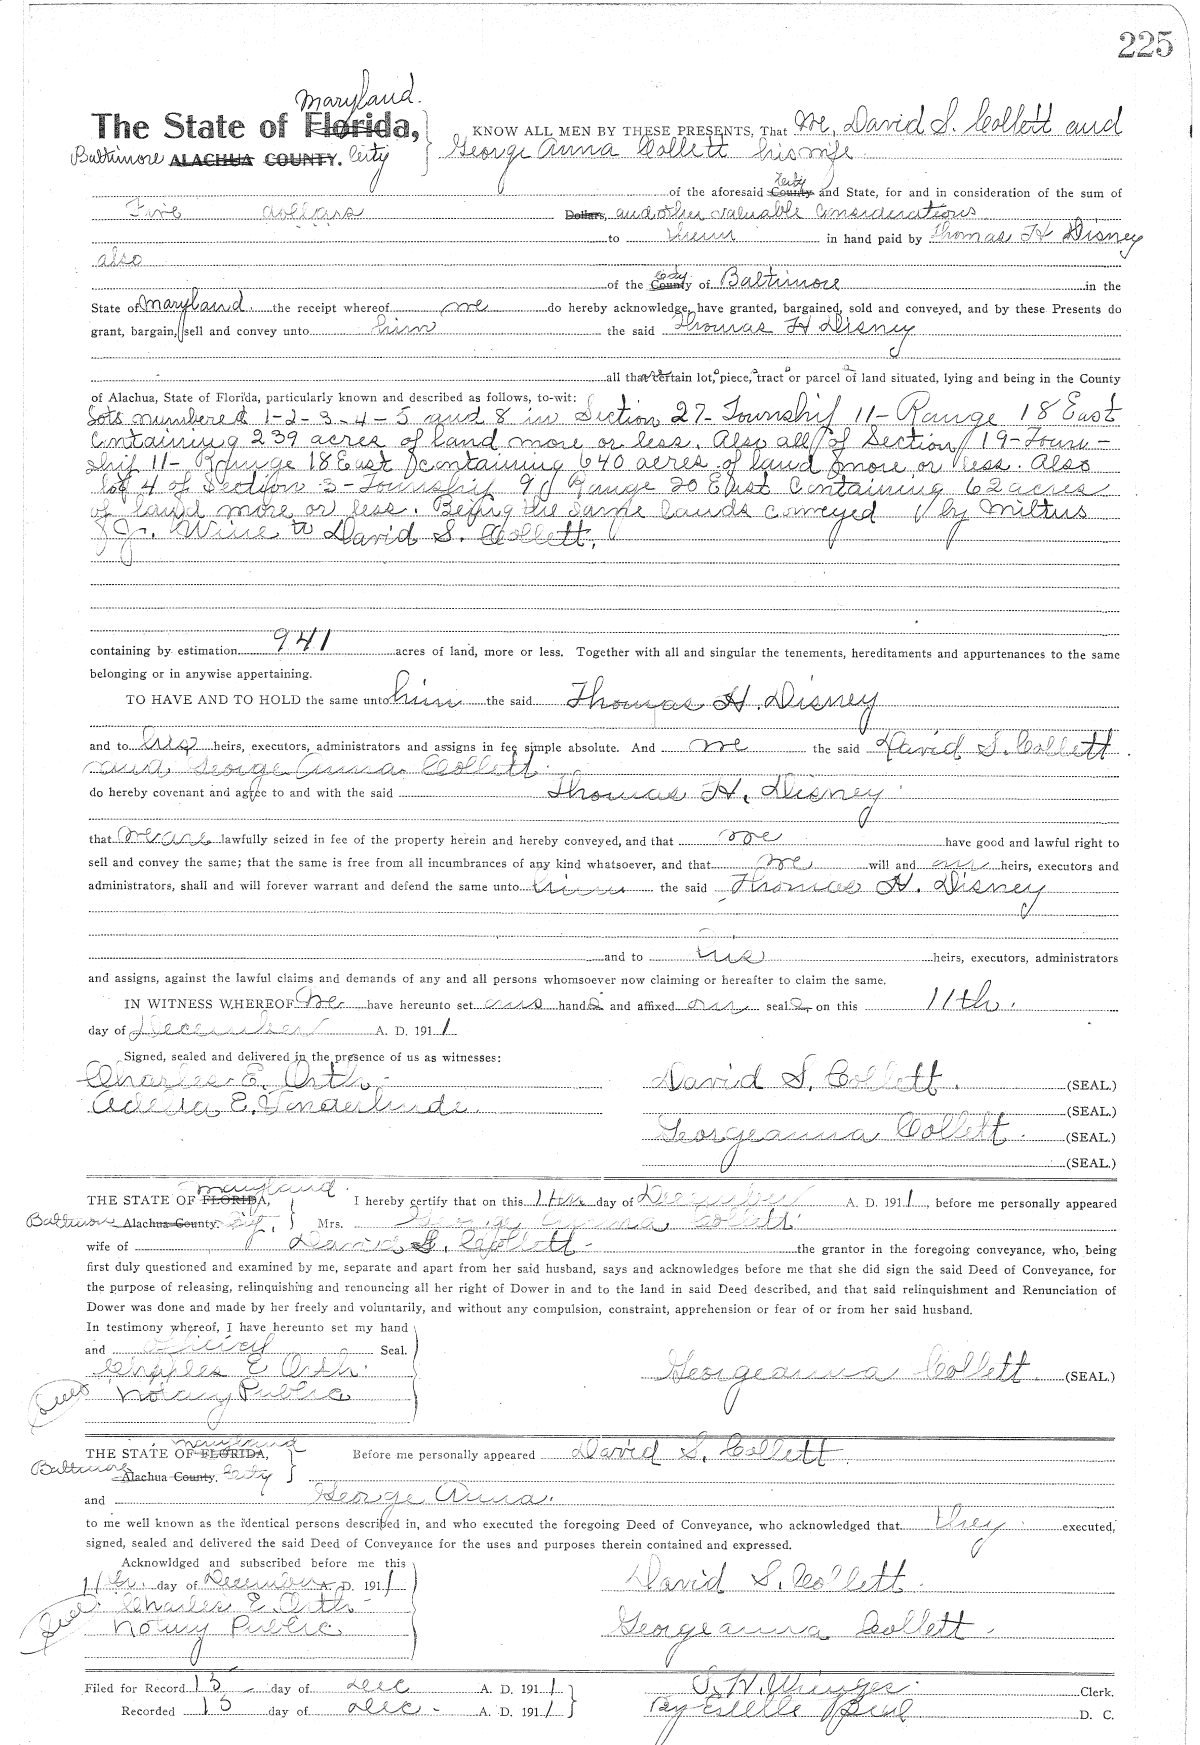 225
Maryland.
The State of Florida, KNOW ALL MEN BY THESE PRESENTS, That We, David S. Collett and
Baltimore ALACHUA COUNTY. City George Anna Collett his wife
of the aforesaid County City and State, for and in consideration of the sum of
Five dollars Dollars, and other valuable considerations
to them in hand paid by Thomas H Disney
also
of the County City of Baltimore in the
State of Maryland. the receipt whereof we do hereby acknowledge, have granted, bargained, sold and conveyed, and by these Presents do
grant, bargain, sell and convey unto him the said Thomas H Disney
all that certain lot, piece, tract or parcel of land situated, lying and being in the County
of Alachua, State of Florida, particularly known and described as follows, to-wit:
Lots numbered 1-2-3-4-5 and 8 in Section 27- Township 11- Range 18 East
Containing 239 acres of land more or less. Also all of Section 19- Town-
ship 11- Range 18 East containing 640 acres of land more or less. Also
lot 4 of Section 3- Township 9 Range 20 East Containing 62 acres
of land more or less. Being the same lands conveyed by Miltus
Jr. Wine to David S. Collett.
containing by estimation 941 acres of land, more or less. Together with all and singular the tenements, hereditaments and appurtenances to the same
belonging or in anywise appertaining.
TO HAVE AND TO HOLD the same unto him the said Thomas H. Disney
and to his heirs, executors, administrators and assigns in fee simple absolute. And we the said David S. Collett
and George Anna Collett
do hereby covenant and agree to and with the said Thomas H. Disney
that we are lawfully seized in fee of the property herein and hereby conveyed, and that we have good and lawful right to
sell and convey the same; that the same is free from all incumbrances of any kind whatsoever, and that we will and our heirs, executors and
administrators, shall and will forever warrant and defend the same unto him the said Thomas H. Disney
and to his heirs, executors, administrators
and assigns, against the lawful claims and demands of any and all persons whomsoever now claiming or hereafter to claim the same.
IN WITNESS WHEREOF We have hereunto set our hands and affixed our seals on this 11th.
day of December A. D. 1911
Signed, sealed and delivered in the presence of us as witnesses:
Charles E. Orth David S. Collett. (SEAL.)
Adelia E. (SEAL.)
Georgeanna Collett. (SEAL.)
(SEAL.)
Maryland.
THE STATE OF FLORIDA, I hereby certify that on this 11th day of December A. D. 1911, before me personally appeared
Baltimore Alachua County. City. Mrs. George Anna Collett
wife of David S. Collett the grantor in the foregoing conveyance, who, being
first duly questioned and examined by me, separate and apart from her said husband, says and acknowledges before me that she did sign the said Deed of Conveyance, for
the purpose of releasing, relinquishing and renouncing all her right of Dower in and to the land in said Deed described, and that said relinquishment and Renunciation of
Dower was done and made by her freely and voluntarily, and without any compulsion, constraint, apprehension or fear of or from her said husband.
In testimony whereof, I have hereunto set my hand
and official Seal.
Charles E Orth. Georgeanna Collett (SEAL.)
Seal Notary Public
Maryland
THE STATE OF FLORIDA, Before me personally appeared David S. Collett
Baltimore Alachua County. City
and George Anna.
to me well known as the identical persons described in, and who executed the foregoing Deed of Conveyance, who acknowledged that they executed,
signed, sealed and delivered the said Deed of Conveyance for the uses and purposes therein contained and expressed.
Acknowldged and subscribed before me this
11th. day of December A. D. 1911 David S. Collett.
Seal Charles E. Orth
Notary Public Georgeanna Collett.
Filed for Record 15 day of Dec A. D. 1911 S. H. Wienges Clerk.
Recorded 15 day of Dec. A. D. 1911 By Estelle D. C.